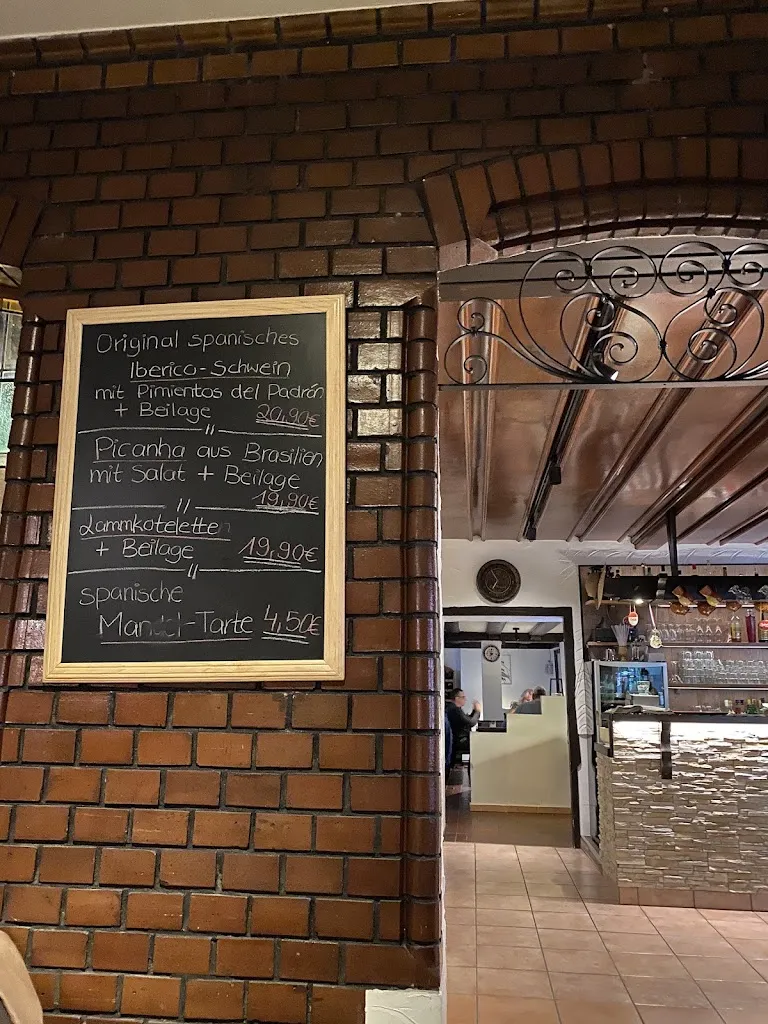 Original spanisches
Iberico-Schwein
mit Pimientos del Padrón
+ Beilage 20,90€
Picanha aus Brasilien
mit Salat + Beilage
19,90€
Lammkoteletten
+ Beilage 19,90€
spanische
Mandel-Tarte 4,50€